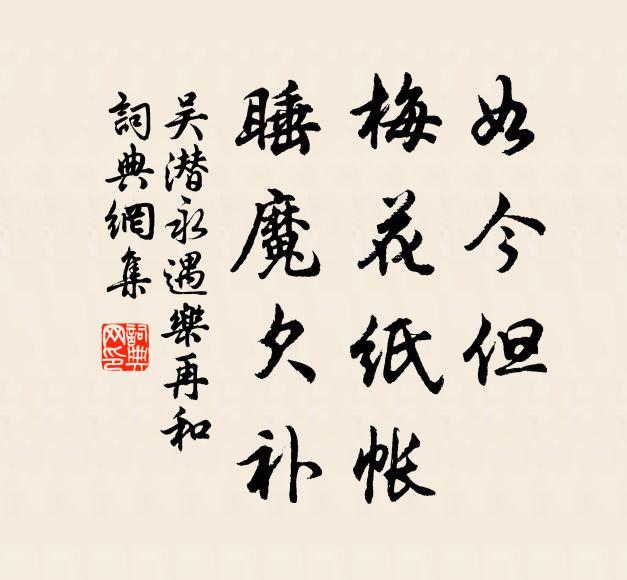 如今但
梅花纸帐
睡魔欠补
吴潜永遇樂再和
詞典網集
詞典
网印